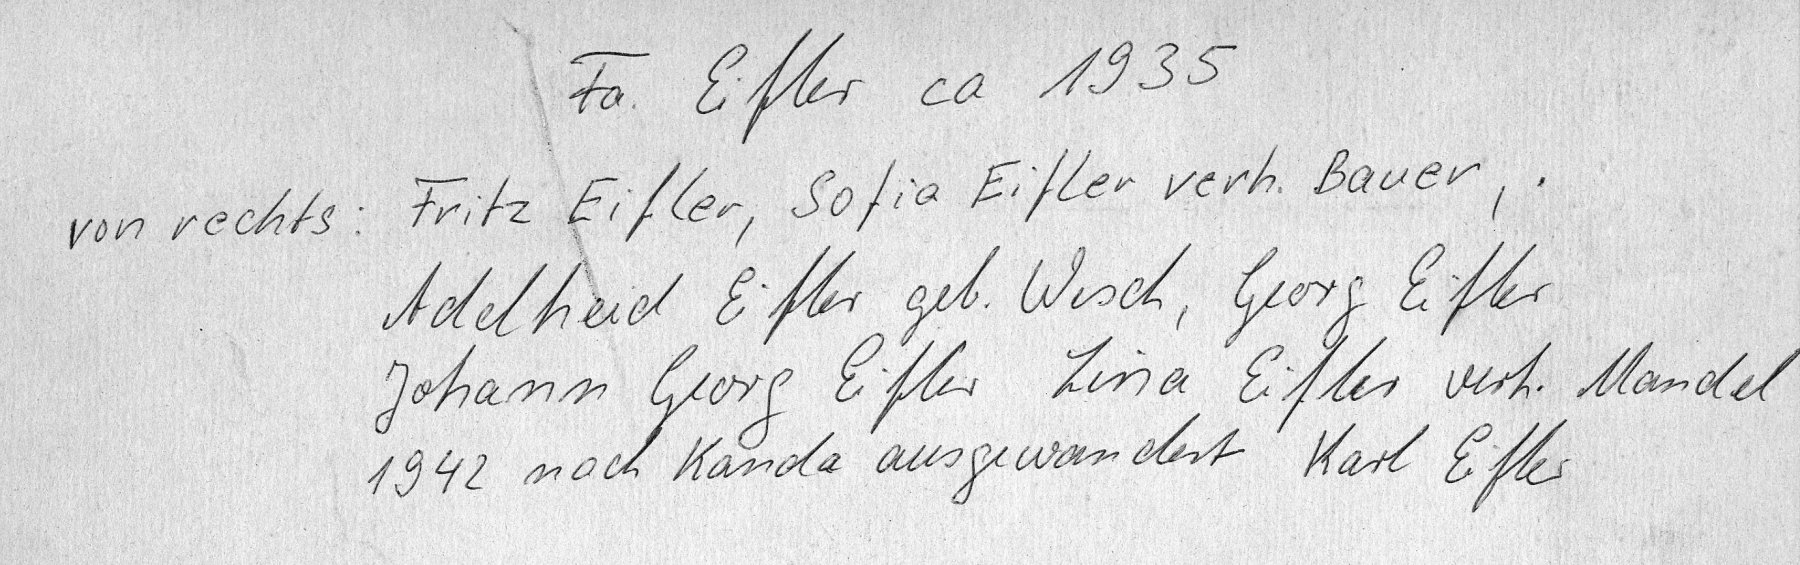 Fa. Eifler ca 1935
von rechts: Fritz Eifler, Sofia Eifler verh. Bauer, .
Adelheid Eifler geb. Wesch, Georg Eifler
Johann Georg Eifler Lina Eifler verh. Mandel
1942 nach Kanda ausgewandert Karl Eifler